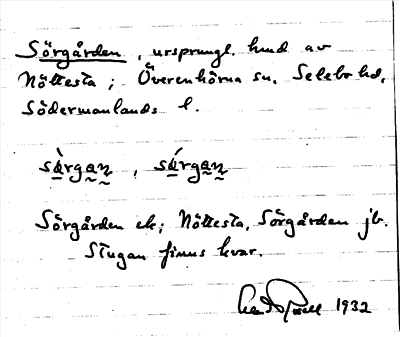 Sörgården, ursprungl. hmd av
Nöttesta; Överenhörna sn. Selebo hd,
Södermanlands l.
sàrgan, sárgan
Sörgården ek; Nöttesta, Sörgården jb.
Stugan finns kvar.
1932